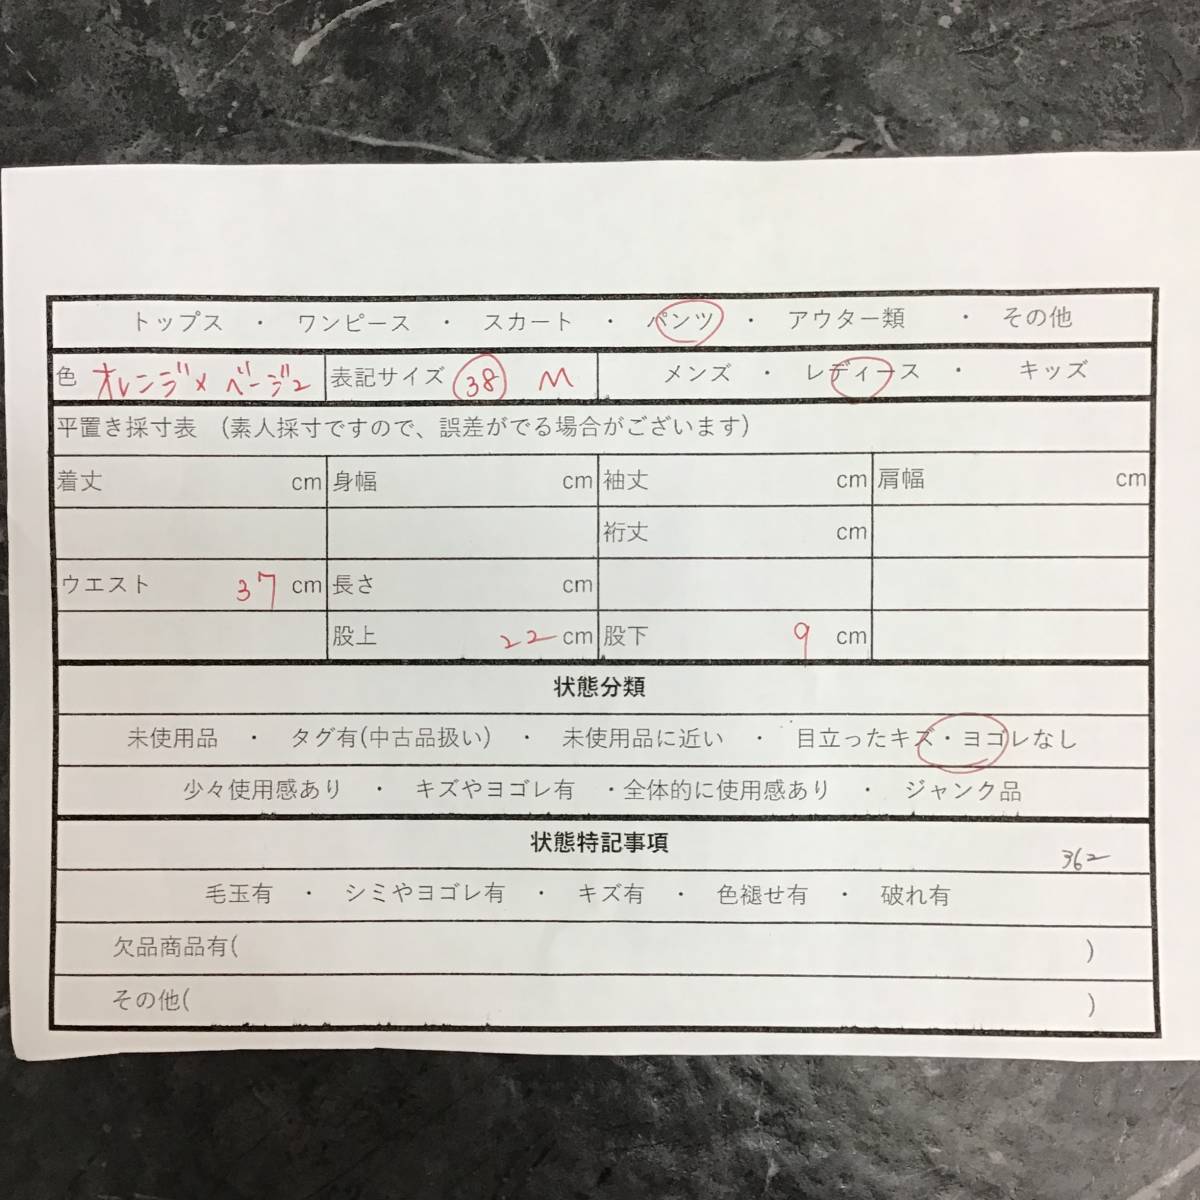 トップス ・ ワンピース ・ スカート ・ パンツ ・ アウター類 ・ その他
色 オレンジ×ベージュ 表記サイズ 38 M メンズ ・ レディース ・ キッズ
平置き採寸表 (素人採寸ですので、誤差がでる場合がございます)
着丈 cm 身幅 cm 袖丈 cm 肩幅 cm
裄丈 cm
ウエスト 37 cm 長さ cm
股上 22 cm 股下 9 cm
状態分類
未使用品 ・ タグ有(中古品扱い) ・ 未使用品に近い ・ 目立ったキズ・ヨゴレなし
少々使用感あり ・ キズやヨゴレ有 ・全体的に使用感あり ・ ジャンク品
状態特記事項 362
毛玉有 ・ シミやヨゴレ有 ・ キズ有 ・ 色褪せ有 ・ 破れ有
欠品商品有( )
その他( )